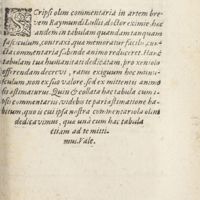 SCripsi olim commentaria in artem bre
vem Raymundi Lullij, doctor eximie hac
eandem in tabulam quandam tanquam
fasciculum, contraxi, qua memoratu facilis, cun
cta commentaria sub inde animo reduceret. Hanc
tabulam tuæ humanitati dedicatam, pro xenio
offerendam decrevi, ratus exiguum hoc munus
culum, non ex suo valore, sed ex mittentis animo
æstimaturus. Quin & collata hac tabula cum i-
psis commentarijs, videbis te pari æstimatione ha
biturum, quo is cui ipsa nostra commentaria olim
dedicavimus, qua una cum hac tabula
etiam ad te mitti
mus. Vale.